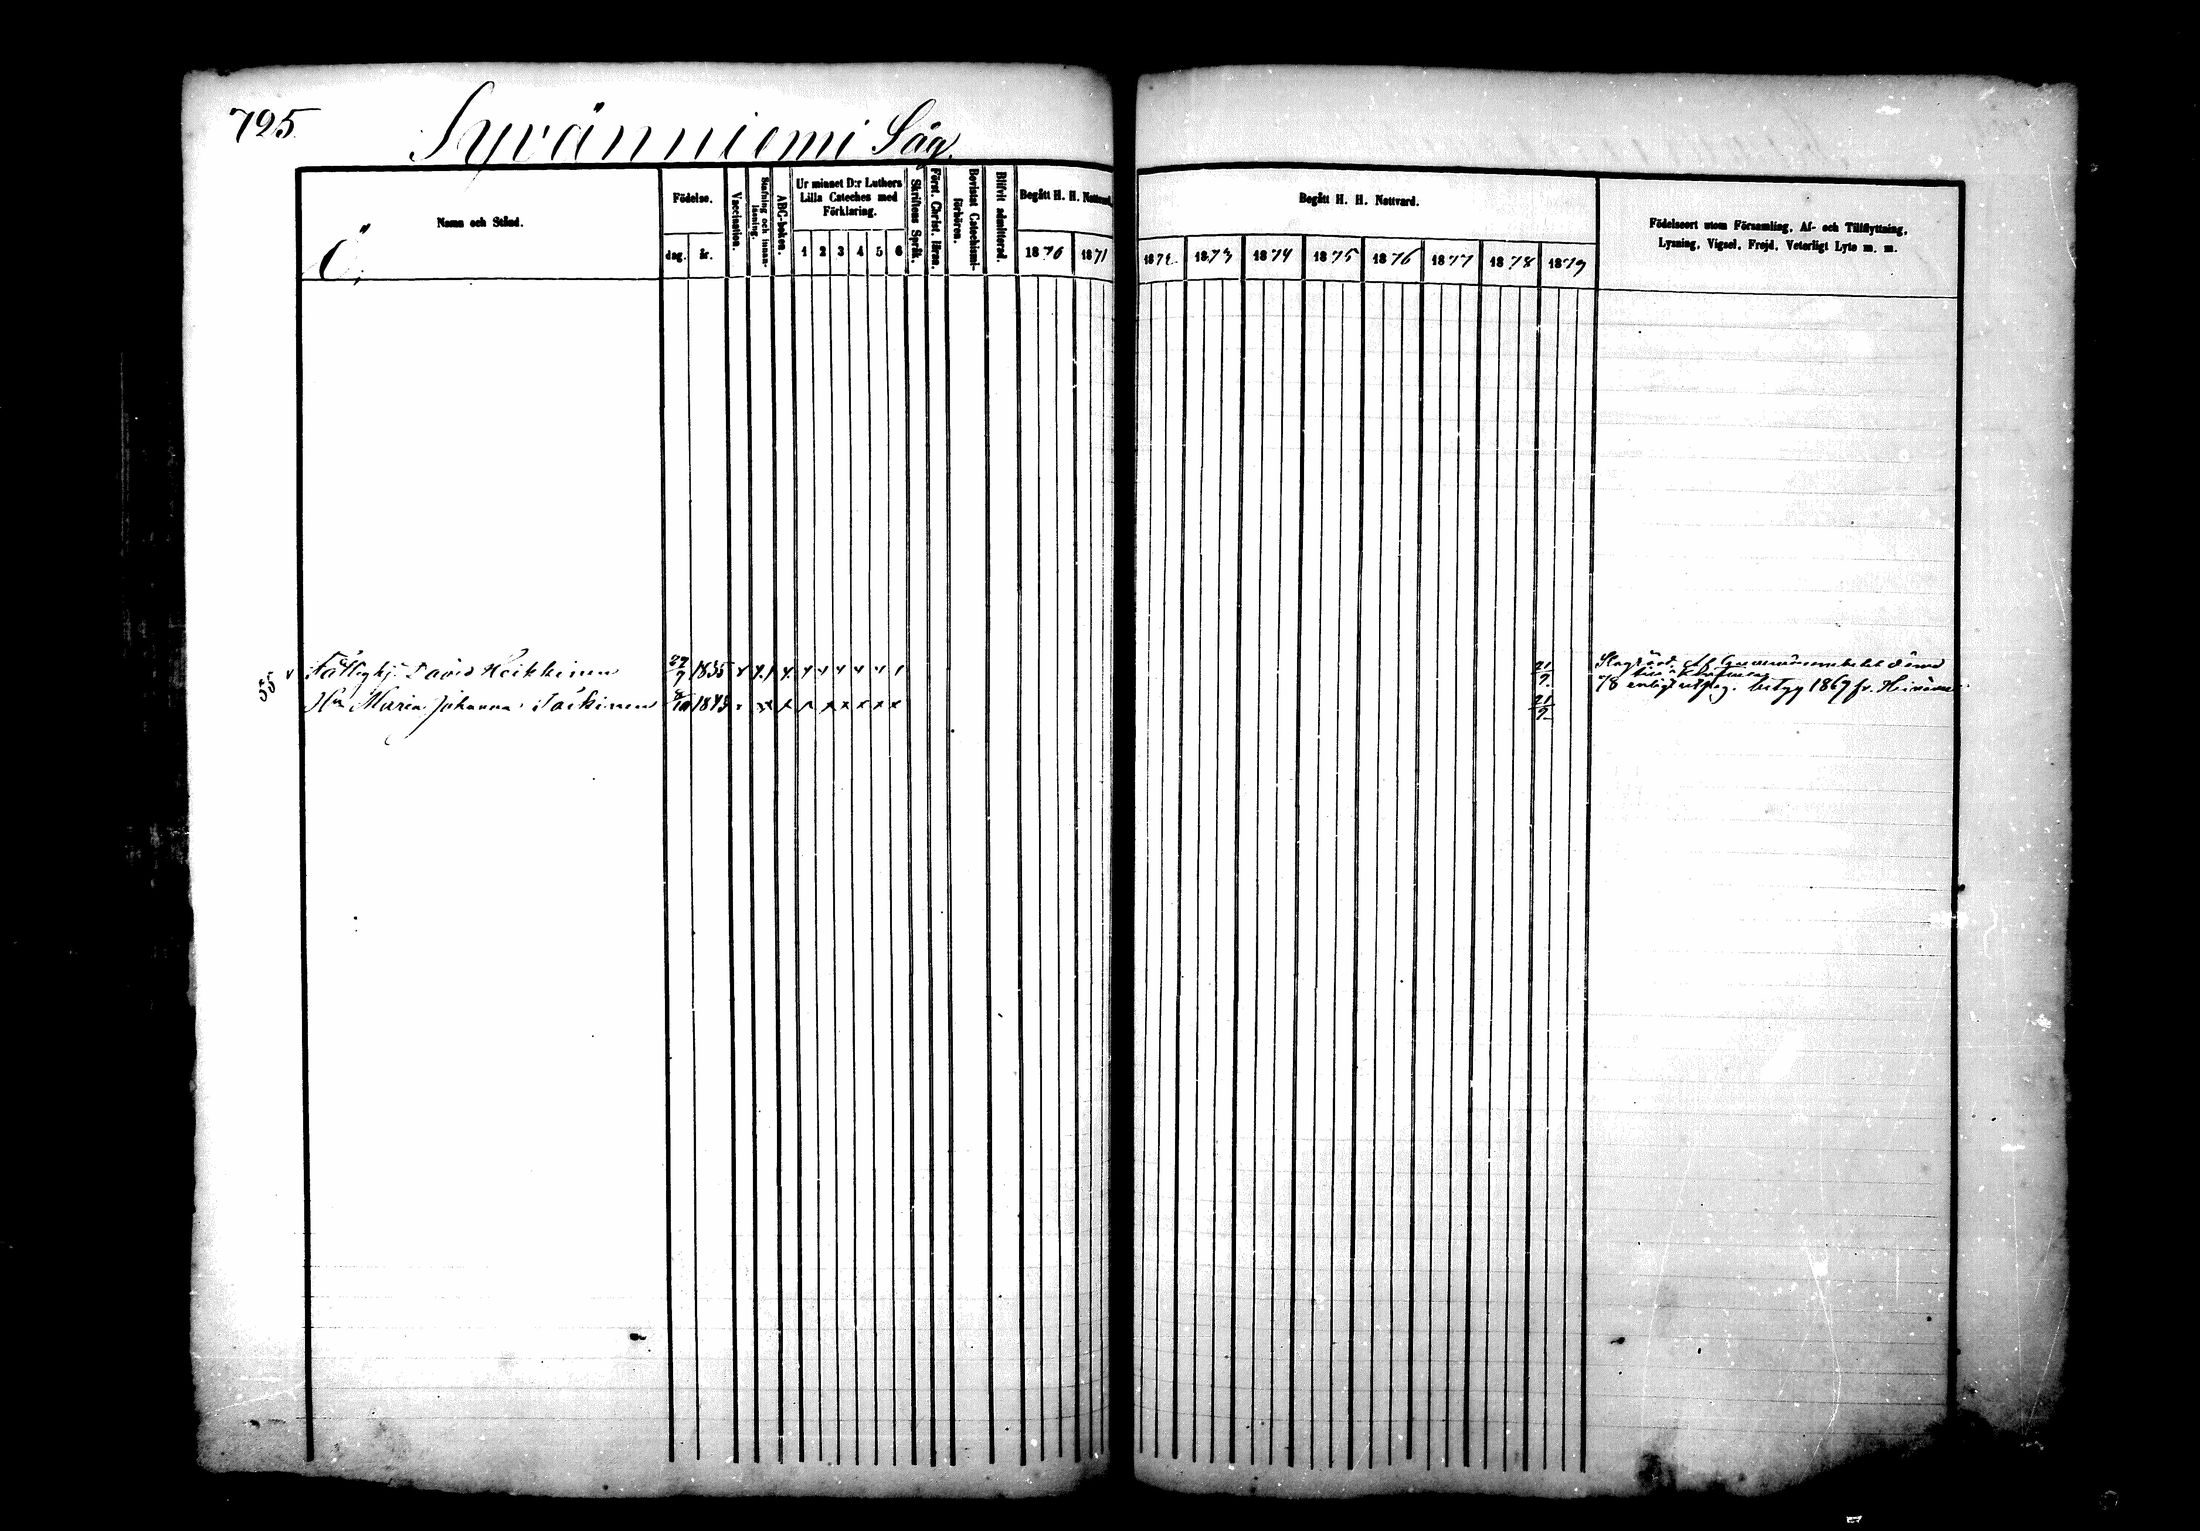 725.
Syvänniemi Såg.
Namn och Stånd.
Ö,
Födelse.
dag. år.
Vaccination.
Stafning och innan-läsning.
ABC-boken.
Ur minnet D:r Luthers
Lilla Cateches med
Förklaring.
1 2 3 4 5 6
Skriftens Språk.
Först. Christ. läran.
Bevistat Catechismi-förhören.
Blifvit admitterad.
Begått H. H. Nattvard.
1870 1871
Begått H. H. Nattvard.
1872 1873 1874 1875 1876 1877 1878 1879
Födelseort utom Församling, Af- och Tillflyttning,
Lysning, Vigsel, Frejd, Veterligt Lyte m. m.
55 David Heikkinen 27/9 1835 21/9
Hu Maria Johanna 1843 21/9
78 enligt betyg 1869 fr.